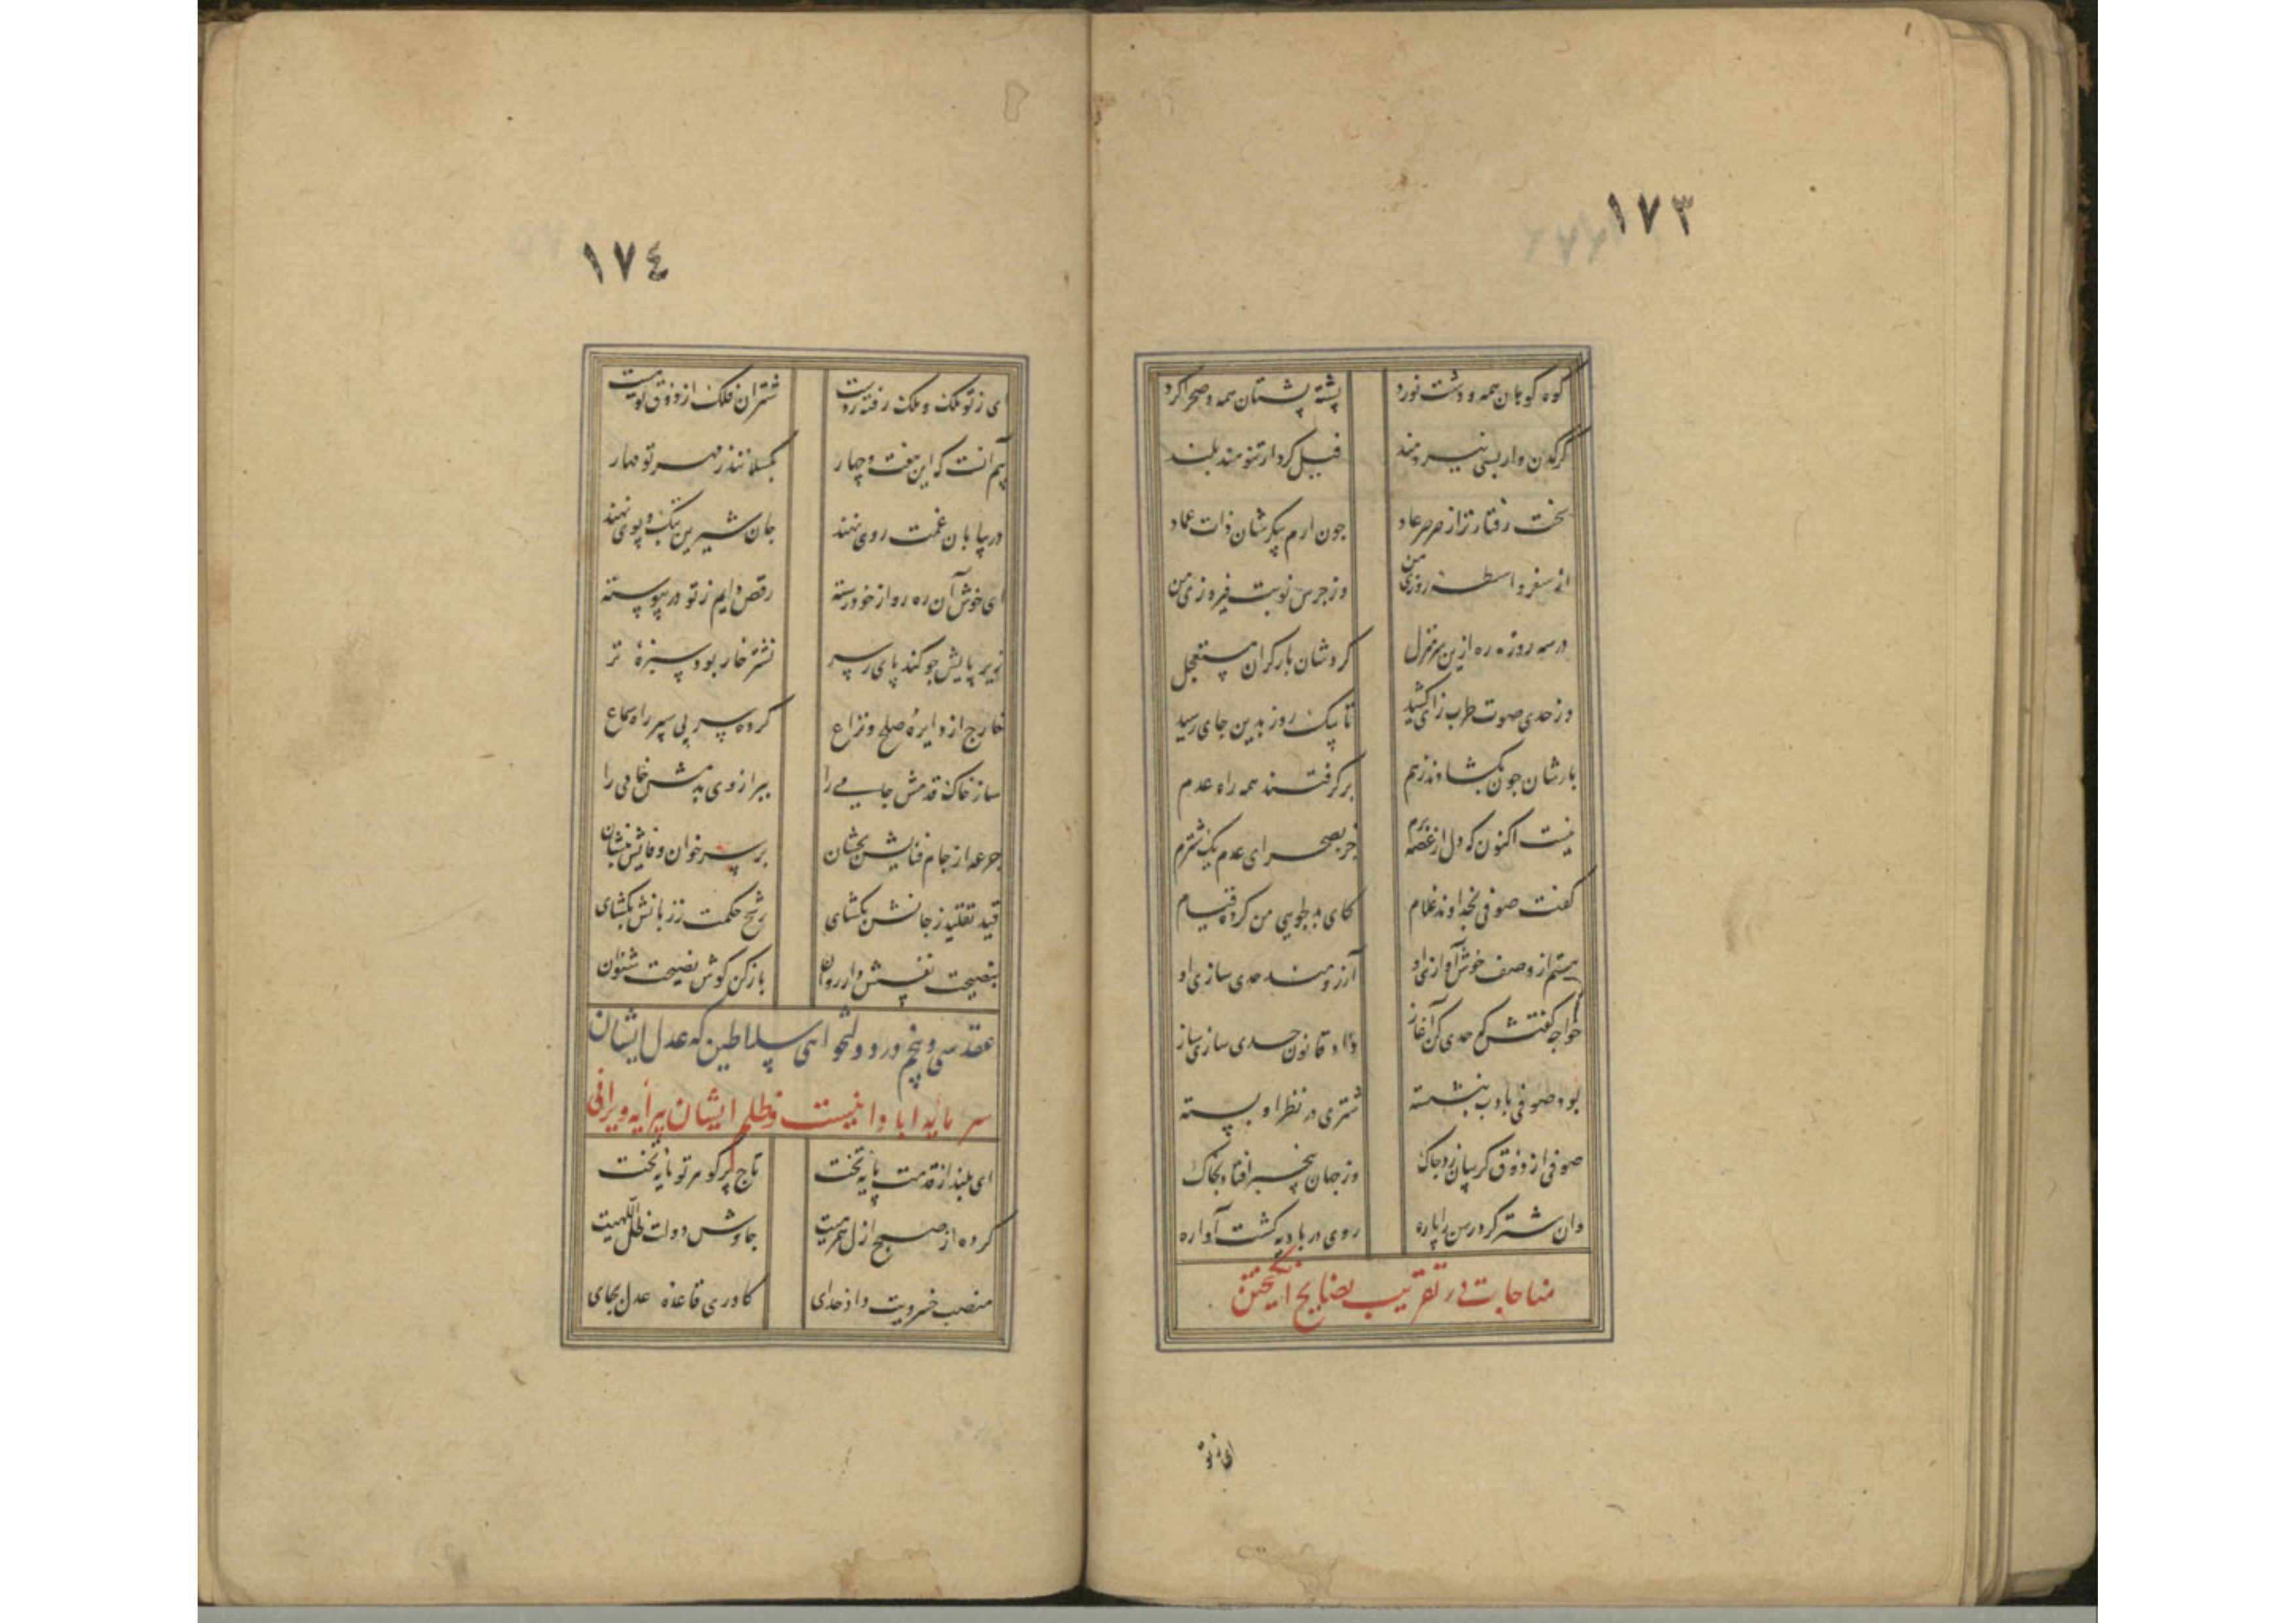 ١٧٣
کوه کوهان همه و دشت نورد پشته پشتان همه و صحرا کرد
کرکدن وار بسی نیرومند فیل کردار تنومند بلند
سخت رفتارتر از صرصر عاد جون ارم پیکرشان ذات عماد
از سفر واسطهٔ روزی من وز جرس نوبت فیروزی من
در سه روزه ره ازین سرمنزل کردشان بار کران مستعجل
وز حدی صوت طرب زای کشید تا بیک روز بدین جای رسید
بارشان جون بکشادند زهم برکرفتند همه راه عدم
نیست اکنون که دل از غصه برم جز بصحرای عدم یک شترم
کفت صوفی بخداوند غلام کای بدلجویی من کرده قیام
هستم از وصف خوش آوازی او آرزومند حدی سازی او
خواجه کفتش که حدی کن آغاز داد قانون حدی سازی ساز
بود صوفی بادب بنشسته شتری در نظر او بسته
صوفی از ذوق کریبان زد جاک وز جهان بیخبر افتاد بخاک
وان شتر کرد رسن را پاره روی در بادیه کشت آواره
مناجات در تقریب بضایح انکیختن
ای ز تو
١٧٤
ای ز تو ملک و ملک رفته ز دست شتران فلک از ذوق تو مست
بیم آنست که این هفت و چهار بکسلانند ز مهر تو مهار
در بیابان غمت روی نهند جان شیرین بتک و پوی نهند
ای خوش آن ره رو از خود رسته رقص دایم ز تو در پیوسته
زیر پایش جو کند پای ز سر نشتر خار بود سبزهٔ تر
خارج از دایرهٔ صلح و نزاع کرده سر پی سپر راه سماع
ساز خاک قدمش جامی را ببر از وی بدمش خامی را
جرعه از جام فنایش بچشان بر سر خوان وفایش بنشان
قید تقلید ز جانش بکشای رشح حکمت ز زبانش بکشای
بنصیحت نفسش دار روان باز کن کوش نصیحت شنوان
عقد سی و پنجم در دولتخواهی سلاطین که عدل ایشان
سرمایه ابادانیست و ظلم ایشان پیرایه ویرانی
ای بلند از قدمت پایه تخت تاج پر کوهر تو مایه بخت
کرده از صبح ازل همرهیت جاوش دولت ظل اللهیت
منصب خسرویت داد خدای کاوری قاعده عدل بجای